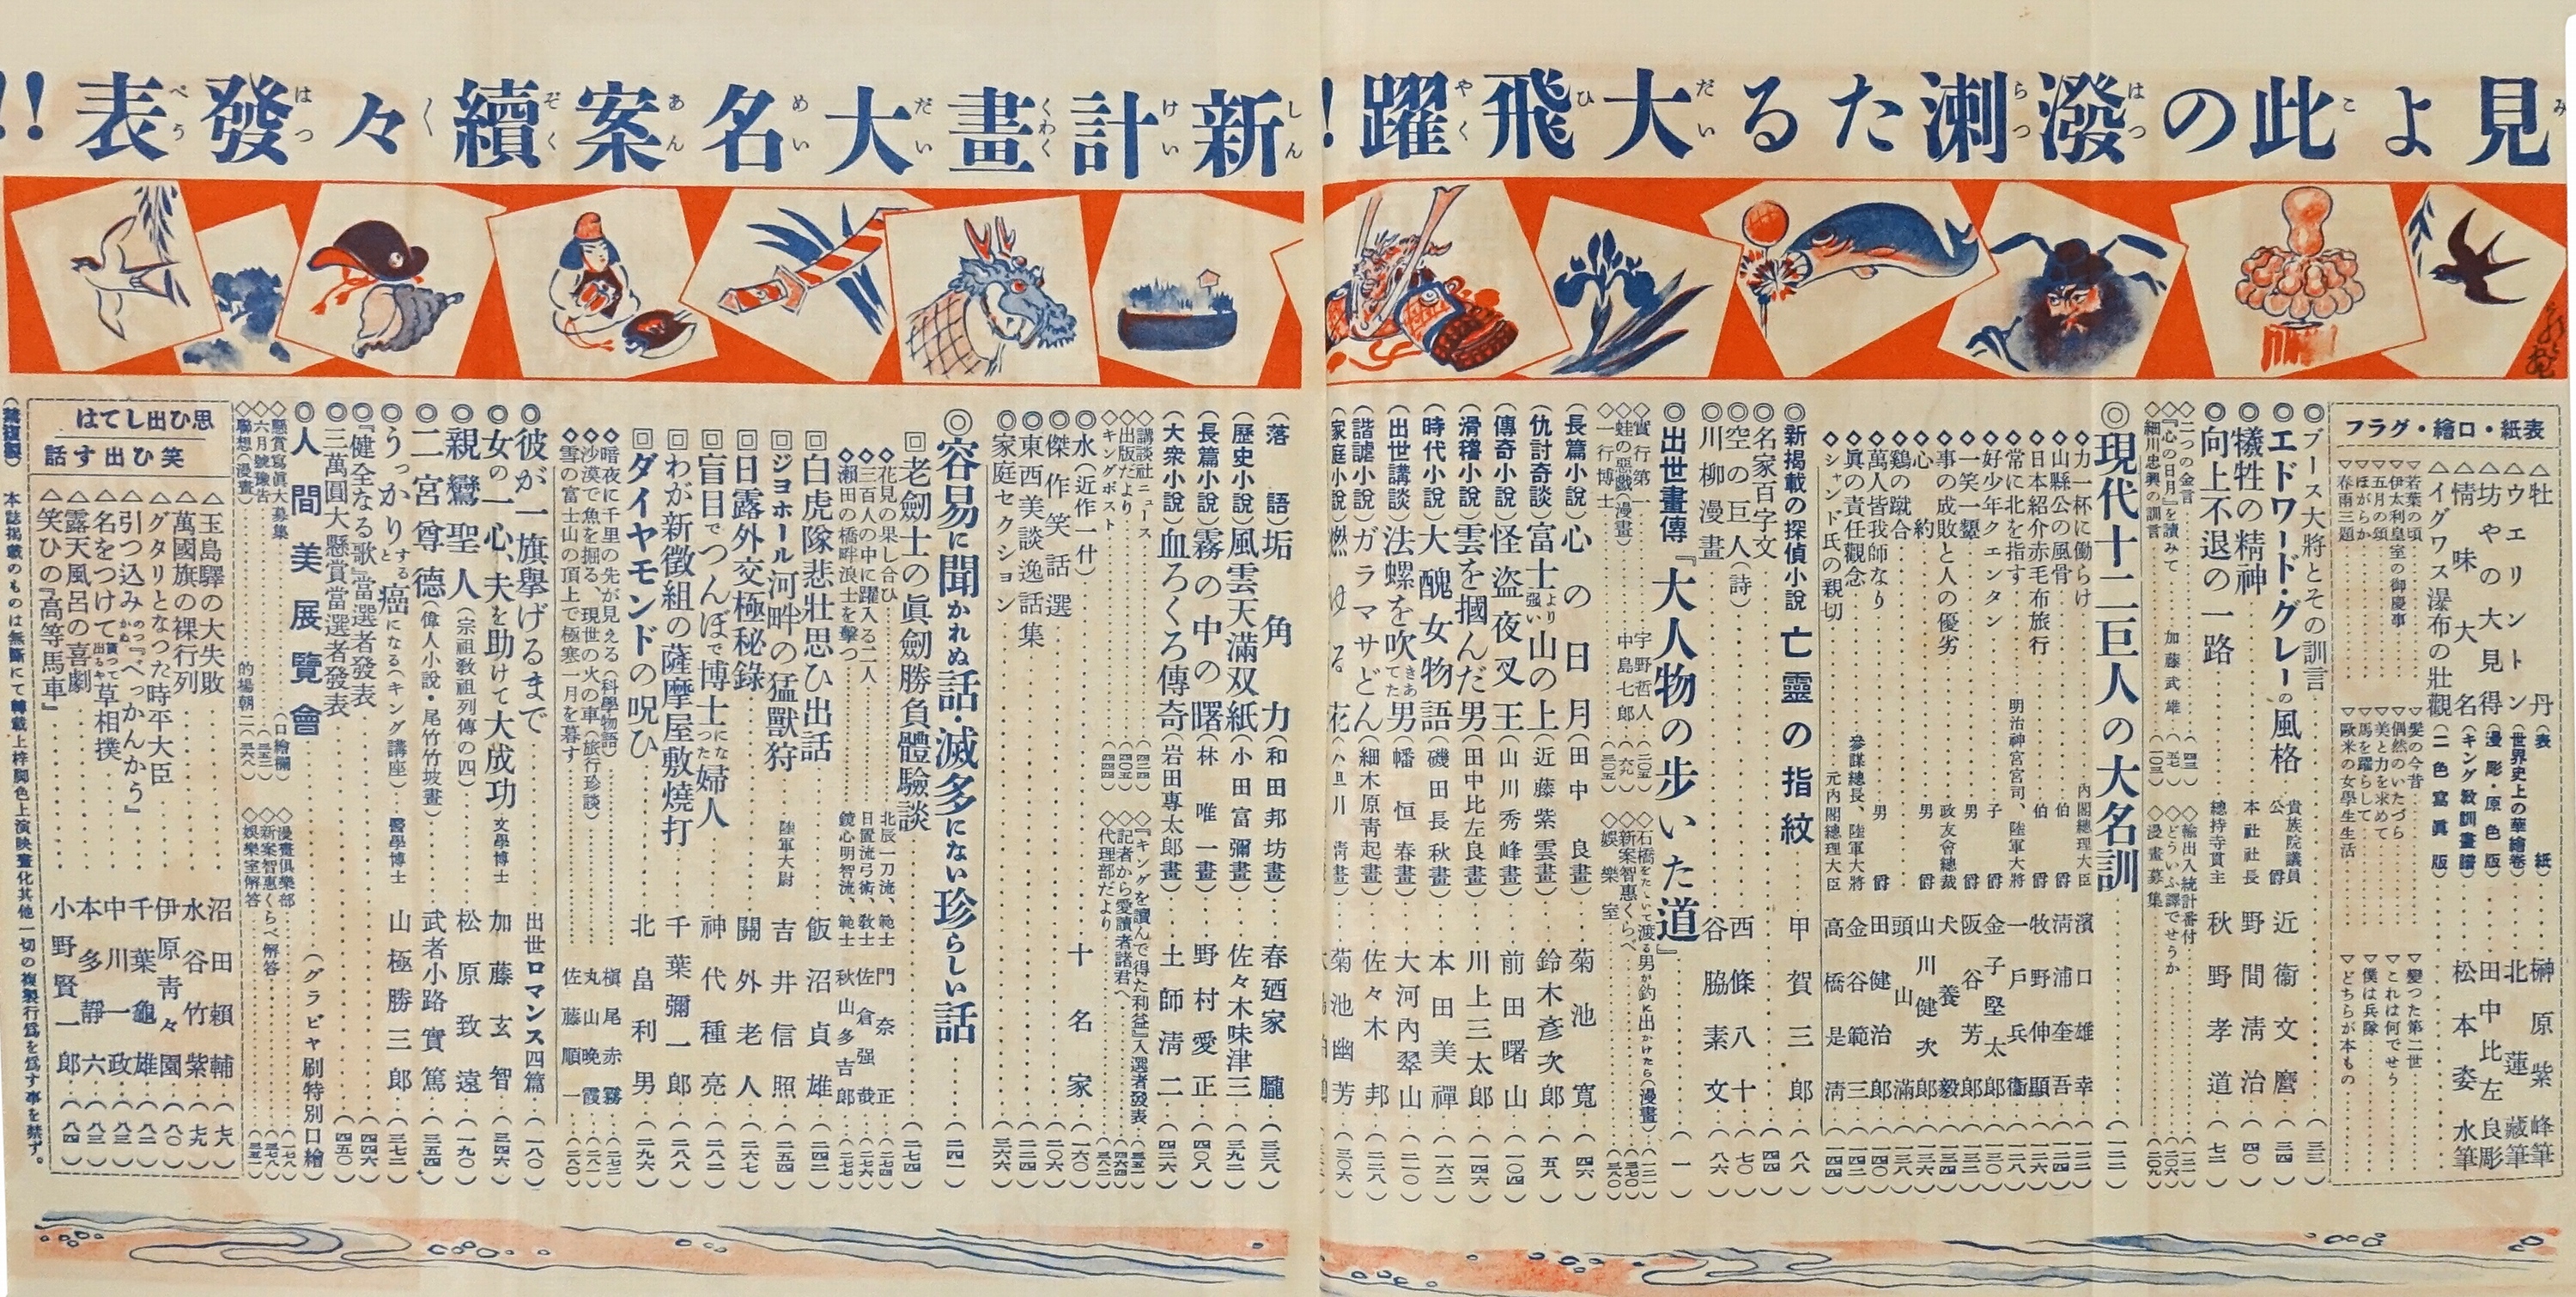 見よ此の潑溂たる大飛躍!
新計畫大名案續々發表!!
表紙・口繪・グラフ
△牡丹(表紙)……榊原紫峰筆
△ウェリントン(世界史上の華繪卷)……北蓮藏筆
△坊やの大見得(漫彫・原色版)……田中比左良彫
△情味大名(キング敎訓畫譜)……松本姿水筆
△イグワス瀑布の壯觀(二色寫眞版)
▽若葉の頃
▽伊太利皇室の御慶事
▽五月の頌
▽ほがらか
▽春雨三題
▽髪の今昔
▽偶然のいたづら
▽美と力を求めて
▽馬を躍らして
▽歐米の女學生生活
▽變つた第二世
▽これは何でせう
▽僕は兵隊
▽どちらが本もの
◎ブース大將とその訓言……(三三)
◎エドワード・グレーの風格……貴族院議員公爵 近衞文麿(三四)
◎犧牲の精神……本社社長 野間淸治(四〇)
◎向上不退の一路……總持寺貫主 秋野孝道(七二)
◇二つの金言……(四三)
◇『心の日月』を讀みて……加藤武雄(五七)
◇細川忠興の訓言……(一〇三)
◇輸出入統計番付……(一二一)
◇どういふ譯でせうか……(二〇六)
◇漫畫募集……(二〇九)
◎現代十二巨人の大名訓……(一二二)
◆力一杯に働らけ……內閣總理大臣 濱口雄幸(一二二)
◆山縣公の風骨……伯爵 淸浦奎吾(一二四)
◆日本紹介赤毛布旅行……伯爵 牧野伸顯(一二六)
◆常に北を指す……明治神宮宮司、陸軍大將 一戶兵衞(一二八)
◆好少年クェンタン……子爵 金子堅太郎(一三〇)
◆一笑一顰……男爵 阪谷芳郎(一三二)
◆事の成敗と人の優劣……政友會總裁 犬養毅(一三四)
◆心約……男爵 山川健次郎(一三六)
◆鷄の蹴合……頭山滿(一三八)
◆萬人皆我師なり……男爵 田健治郎(一四〇)
◆眞の責任觀念……參謀總長、陸軍大將 金谷範三(一四二)
◆シャンド氏の親切……元內閣總理大臣 高橋是淸(一四四)
◎新揭載の探偵小說 亡靈の指紋……甲賀三郎(八八)
◎名家百字文……(四四)
◎空の巨人(詩)……西條八十(七〇)
◎川柳漫畫……谷脇素文(八六)
◎出世畫傳『大人物の步いた道』……(一)
◇實行第一……宇野哲人(一〇五)
◇蛙の惡戲(漫畫)……中島七郎(一六九)
◇一行博士……(三〇五)
◇石橋をたゝいて渡る男が釣に出かけたら(漫畫)(一二一)
◇新案智惠くらべ……(三七〇)
◇娛樂室……(三八〇)
(長篇小說)心の日月(田中良畫)……菊池寬(四六)
(仇討奇談)富士より强い山の上(近藤紫雲畫)……鈴木彥次郎(五八)
(傳奇小說)怪盜夜叉王(山川秀峰畫)……前田曙山(一〇四)
(滑稽小說)雲を摑んだ男(田中比左良畫)……川上三太郎(一四六)
(時代小說)大醜女物語(磯田長秋畫)……本田美禪(一六二)
(出世講談)法螺を吹きあてた男(幡恒春畫)……大河內翠山(二一〇)
(諧謔小說)ガラマサどん(細木原靑起畫)……佐々木邦(二二八)
(家庭小說)燃ゆる花……菊池幽芳(三〇六)
(落語)垢角力(和田邦坊畫)……春廼家朧(三三八)
(歷史小說)風雲天滿双紙(小田富彌畫)……佐々木味津三(三九二)
(長篇小說)霧の中の曙(林唯一畫)……野村愛正(四〇八)
(大衆小說)血ろくろ傳奇(岩田專太郎畫)……土師淸二(四二六)
◇講談社ニュース……(四二四)
◇出版だより……(四〇五)
◇キングポスト……(四四四)
◇『キングを讀んで得た利益』入選者發表……(三五一)
◇記者から愛讀者諸君へ……(四六四)
◇代理部だより……(三八二)
◎水(近作一什)……十名家(一六〇)
◎傑作笑話選……(二〇六)
◎東西美談逸話集……(二二四)
◎家庭セクション……(三六六)
◎容易に聞かれぬ話・滅多にない珍らしい話……(二四一)
回老劍士の眞劍勝負體驗談……(二七四)
◆花見の果し合ひ……北辰一刀流、範士 門奈正(二七四)
◆三百人の中に躍入る二人……日置流弓術、敎士 佐倉强哉(二七六)
◆瀨田の橋畔浪士を擊つ……鏡心明智流、範士 秋山多吉郎(二七七)
回白虎隊悲壯思ひ出話……飯沼貞雄(二四二)
回ジョホール河畔の猛獸狩……陸軍大尉 吉井信照(二五四)
回日露外交極秘錄……關外老人(二六七)
回盲目でつんぼで博士になつた婦人……神代種亮(二八二)
回わが新徵組の薩摩屋敷燒打……千葉彌一郎(二八八)
回ダイヤモンドの呪ひ……北畠利男(二九六)
◆暗夜に千里の先が見える(科學物語)……槇尾赤霧(二七二)
◆沙漠で魚を掘る、現世の火の車(旅行珍談)……丸山晚霞(二八一)
◆雪の富士山の頂上で極寒一月を暮す……佐藤順一(二八〇)
◎彼が一旗擧げるまで……出世ロマンス四篇(一八〇)
◎女の一心、夫を助けて大成功……文學博士 加藤玄智(三四六)
◎親鸞聖人(宗祖敎祖列傳の四)……松原致遠(一九〇)
◎二宮尊德(偉人小說・尾竹竹坡畫)……武者小路實篤(三五四)
◎うっかりすると癌になる(キング講座)……醫學博士 山極勝三郎(三七二)
◎『健全なる歌』當選者發表……(四四六)
◎三萬圓大懸賞當選者發表……(四五〇)
◎人間美展覽會……(グラビヤ刷特別口繪)
◇懸賞寫眞大募集……(口繪欄)
◇六月號豫告……(三五三)
◇聯想(漫畫)……的場朝二(二六六)
◇漫畫俱樂部……(一七八)
◇新案智惠くらべ解答……(三七八)
◇娛樂室解答……(三五一)
思ひ出しては
笑ひ出す話
△玉島驛の大失敗……沼田賴輔(七八)
△萬國旗の裸行列……水谷竹紫(七九)
△グタリとなつた時平大臣……伊原靑々園(八〇)
△引つ込みかぬの『べっかんかう』……千葉龜雄(八二)
△名をつけて貰つて出るや草相撲……中川一政(八三)
△露天風呂の喜劇……本多靜六(八三)
△笑ひの『高等馬車』……小野賢一郎(八四)
(禁複製) 本誌揭載のものは無斷にて轉載上梓脚色上演映畫化其他一切の複製行爲を爲す事を禁ず。